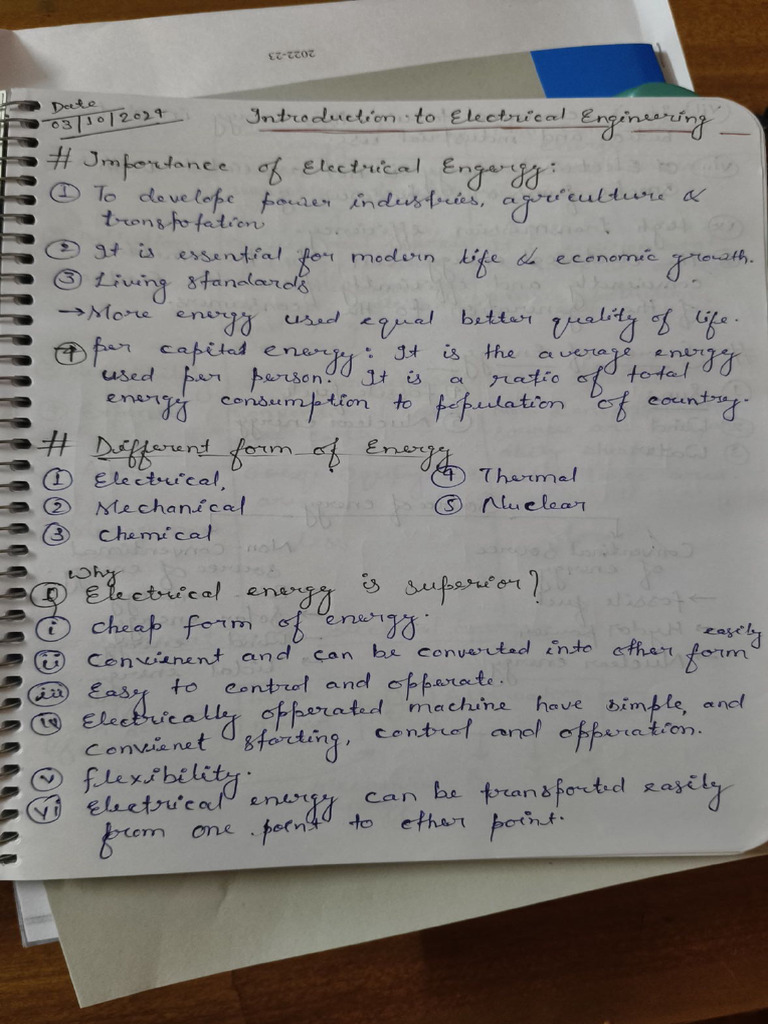 2022-23
Date
03/10/2024
Introduction to Electrical Engineering
# Importance of Electrical Engergy:
① To develope power industries, agriculture &
transpotation
② It is essential for modern life & economic growth.
③ Living standards
→ More energy used equal better quality of life.
④ per capital energy: It is the average energy
used per person. It is a ratio of total
energy consumption to population of country.
# Different form of Energy
① Electrical, ④ Thermal
② Mechanical ⑤ Nuclear
③ Chemical
Why
Electrical energy is superior?
i cheap form of energy.
easily
ii Convienent and can be converted into other form
iii Easy to control and opperate.
iv Electrically opperated machine have simple, and
Convienet starting, control and opperation.
v flexibility.
vi Electrical energy can be transported easily
from one point to other point.